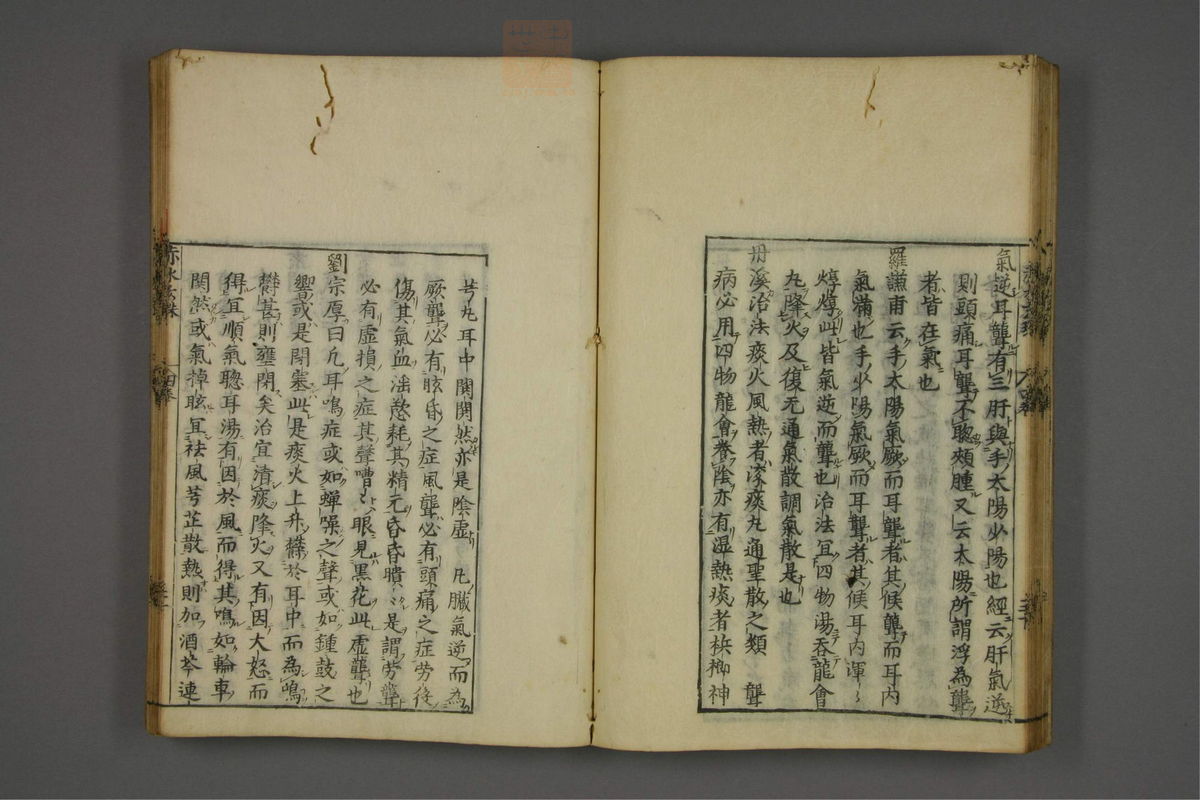 氣逆耳聾有三肝與手太陽少陽也經云肝氣逆
則頭痛耳聾不聦頰腫又云太陽所謂浮為聾
者皆在氣也
羅謙甫云手太陽氣厥而耳聾者其候聾而耳内
氣滿也手少陽氣厥而耳聾者其候耳内渾〻
焞焞此皆氣逆而聾也治法宜四物湯吞龍會
丸降火及復元通氣散調氣散是也
丹溪治法痰火風熱者滚痰丸通聖散之類 聾
病必用四物龍會養陰亦有湿熱痰者檳榔神
芎丸耳中閧閧然亦是陰虚 凡臓氣逆而為
厥聾必有眩昏之症風聾必有頭痛之症労後
傷其氣血滛慾耗其精元昏昏聵〻是謂労聾
必有虚損之症其聲嘈〻眼見黒花此虚聾也
劉宗厚曰凢耳鳴症或如蟬噪之聲或如鍾鼓之
響或是閉塞此是痰火上升欝於耳中而為鳴
欝甚則壅閉矣治宜清痰降火又有因大怒而
得宜順氣聦耳湯有因於風而得其鳴如輪車
閧然或氣掉眩宜祛風芎芷散熱則加酒芩連
赤水玄珠